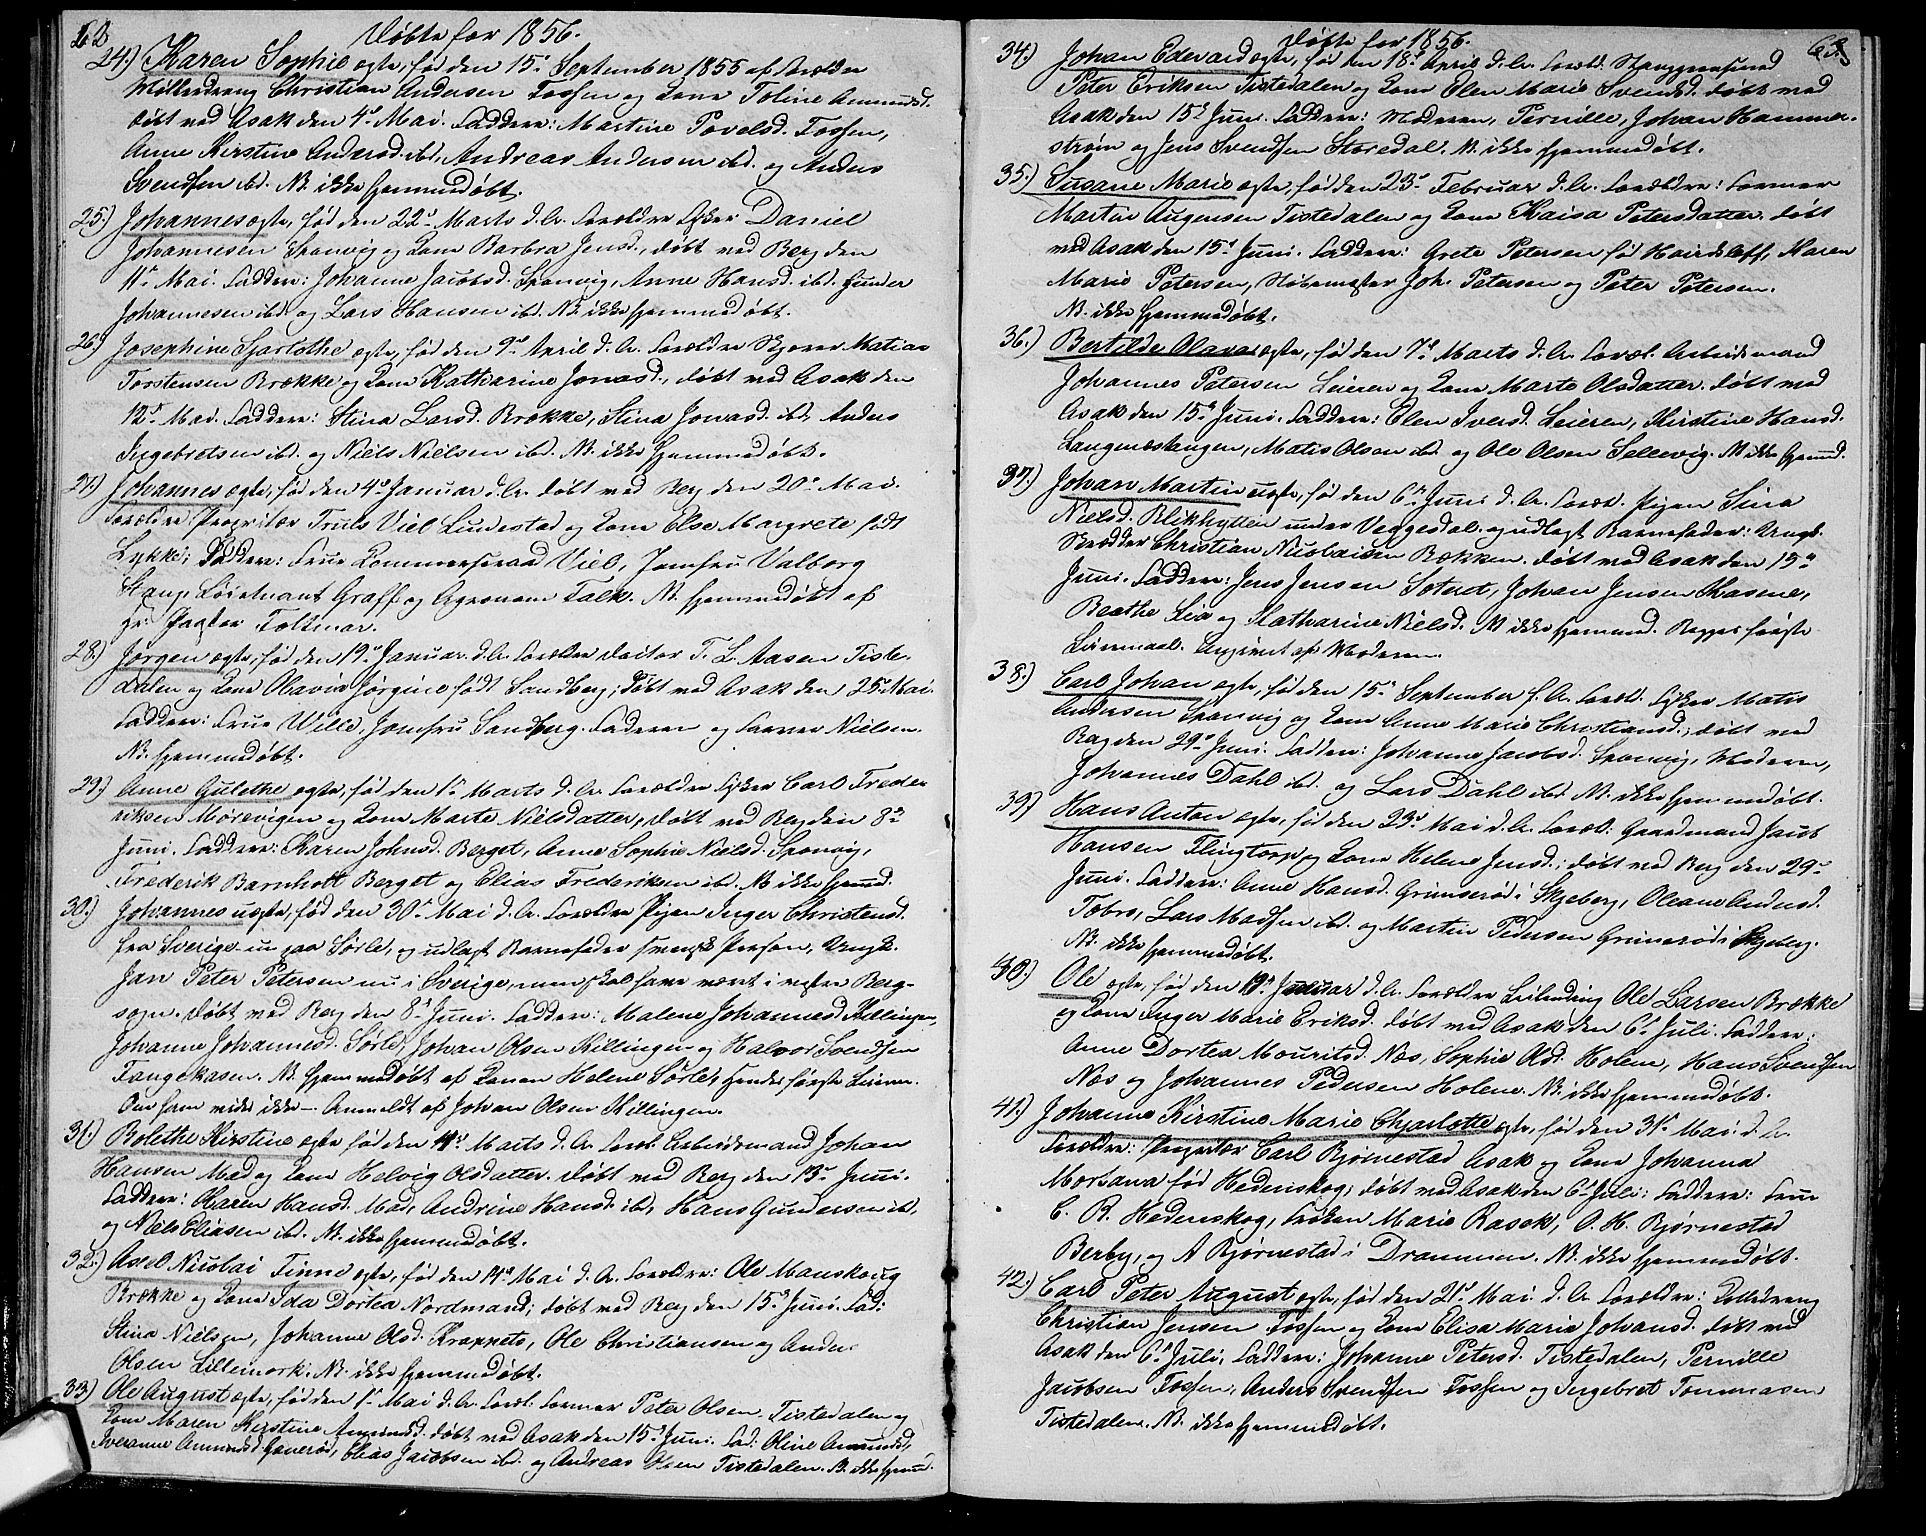 62
Døbte for 1856.
24.) Karen Sophie ægte, født den 15de September 1855 af Forældre
Møllerdreng Christian Andersen Fossen og Kone Toline Amundsd.
døbt ved Asak den 4de Mai. Faddere: Martine Povelsd. Fossen,
Anne Kirstine Andersd. ibd. Andreas Andersen ibd. og Anders
Svendsen ibd. NB. ikke hjemmedøbt.
25.) Johannes ægte, fød den 22de Marts d. A. Forældre Daniel
Johannesen Sponvig og Kone Barbra Jensd., døbt ved Berg den
11te Mai. Faddere: Johanne Jacobsd. Sponvig, Anne Hansd. ibd. Gunder
Johannesen ibd. og Lars Hansen ibd. NB. ikke hjemmedøbt.
26.) Josephine Sjarlothe ægte, fød den 9de April d. A. Forældre Matias
Torstensen Brække og Kone Katharine Jonasd., døbt ved Asak den
12te Mai. Faddere: Stina Larsd. Brække, Stina Jonasd. ibd. Anders
Ingebretsen ibd. og Niels Nielsen ibd. NB. ikke hjemmedøbt.
27.) Johannes ægte, fød den 4de Januar d. A. døbt ved Berg den 20de Mai.
Forældre: Propritær Truls Viel Lundestad og Kone Else Margrete født
Lykke; Faddere: Frue Kommerseraad Viel, Jomfru Valborg
Stang, Løitenant Graff og Agronom Falk. NB. hjemmedøbt af
Hr. Pastor Foltmar.
28.) Jørgen ægte, fød den 19de Januar d. A. Forældre T. L. Aasen Tiste-
dalen og Kone Olavia Jørgine født Sandberg; døbt ved Asak den 25de Mai.
Faddere: Frue Wille, Jomfru Sandberg. Faderen og Farver Nielsen.
NB. hjemmedøbt.
29.) Anne Gulethe ægte, fød den 1te Marts d. A. Forældre Carl Frede-
riksen Mørevigen og Kone Marte Nielsdatter, døbt ved Berg den 8de
Juni. Faddere: Karen Johnsd. Berget, Anne Sophie Nielsd. Sponvig,
Frederik Barnholt Berget og Elias Frederiksen ibd. NB. ikke hjemmd.
30.) Johannes uægte, fød den 30te Mai d. A. Forældre Pigen Inger Christensd.
fra Sverige nu paa Sørle, og udlagt Barnefader svensk Person, Ungk.
Jan Peter Petersen nu i Sverige, men skal have været i vestre Berg-
sogn. døbt ved Berg den 8de Juni. Faddere: Malene Johannesd. Killingen,
Johanne Johannesd. Sørle, Johan Olsen Killingen og Halvor Svendsen
Tangekasen. NB. hjemmedøbt af Konen Helene Sørle, hendes første Leierm.
Om ham vides ikke — Anmeldt af Johan Olsen Killingen.
31.) Bolethe Kirstine ægte fød den Marts d. A. Foræl. Arbeidsmand Johan
Hansen Mad og Kone Helvig Olsdatter. døbt ved Berg den 15de Juni.
Faddere: Karen Hansd. Mad, Andrine Hansd. ibd, Hans Gundersen ibd.
og Niels Eliasen ibd. NB. ikke hjemmedøbt.
32.) Axel Nicolai Finne ægte, fød den 14de Mai d. A. Forældre: Ole Manskoug
Brække og Kone Ida Dortea Nordmand; døbt ved Berg den 15de Juni. Fad:
Stina Nielsen, Johanne Olsd. Krappeto, Ole Christiansen og Anders
Olsen Lillemork. NB. ikke hjemmedøbt.
33.) Ole August ægte, fød den 1te Mai d. A. Foræl. Former Peter Olsen Tistedalen og
Kone Maren Kirstine Amundsd. døbt ved Asak den 15de Juni. Fad: Oline Amundsd,
Iveranne Amundsd., Elias Jacobsen ibd. og Andreas Olsen Tistedalen. NB. ikke hjemmd.
63
Døbte for 1856.
34.) Johan Edevard ægte, fød den 18de April d. A. Foræld:
Peter Eriksen Tistedalen og Kone Elen Marie Svendsd. døbt ved
Asak den 15de Juni. Faddere: Moderen, Pernille, Johan Hammer-
strøm og Jens Svendsen Støredal. NB. ikke hjemmedøbt.
35.) Susane Marie ægte, fød den 23de Februar d. A. Forældre: Former
Martin Augensen Tistedalen og Kone Kaisa Petersdatter. døbt
ved Asak den 15de Juni. Faddere: Grete Petersen fød, Karen
Marie Petersen, Støbemester Joh. Petersen og Peter Petersen.
NB. ikke hjemmedøbt.
36.) Bertilde Olava ægte, fød den 7de Marts d. A. Foræl. Arbeidsmand
Johannes Petersen Leieren og Kone Marte Olsdatter. døbt ved
Asak den 15de Juni. Faddere: Elen Iversd. Leieren, Kirstine Hansd.
Langnæstangen, Matis Olsen ibd. og Ole Olsen Sellevig. NB. ikke hjemmd.
37.) Johan Martin uægte, fød den 6te Juni d. A. Foræl. Pigen Sina
Nielsd. Blikhytten under Veggedal og udlagt Barnefader: Ungk.
Skrædder Christian Nicolaisen Bækken. døbt ved Asak den 15de
Juni. Faddere: Jens Jensen Soteret, Johan Jensen Kasene,
Beathe Lia og Katharine Nielsd. NB. ikke hjemmd. Begges første
Leiermaal. Angivet af Moderen.
38.) Carl Johan ægte, fød den 15de September f. A. Foræl. Matis
Andersen Sponvig og Kone Anne Marie Christiansd., døbt ved
Berg den 29de Juni. Faddere: Johanne Jacobsd. Sponvig, Moderen,
Johannes Dahl ibd. og Lars Dahl ibd. NB. ikke hjemmedøbt.
39.) Hans Anton ægte, fød den 23de Mai d. A. Foræl: Gaardmand Jacob
Hansen Flingtorp og Kone Helene Jensd.; døbt ved Berg den 29de
Juni. Faddere: Anne Hansd. Grimserød i Skjeberg, Oleane Andersd.
Tobro, Lars Madsen ibd. og Martin Pedersen Grimserød i Skjeberg.
NB. ikke hjemmedøbt.
40.) Ole ægte, fød den Januar d. A. Forældre Leilending Ole Larsen Brække
og Kone Inger Marie Eriksd. døbt ved Asak den 6te Juli. Faddere:
Anne Dortea Mouritsd. Næs, Sophie Olsd. Holene, Hans Svendsen
Næs og Johannes Pedersen Holene. NB. ikke hjemmedøbt.
41.) Johanne Kirstine Marie Chjarlotte ægte, fød den 31te Mai d. A.
Forældre: Proprietær Carl Bjørnestad Asak og Kone Johanna
Mortana fød Hedenskog; døbt ved Asak den 6te Juli: Faddere: Frue
C. R. Hedenskog, Frøken Marie Rasck, O. H. Bjørnestad
Berby, og A Bjørnestad i Drammen. NB. ikke hjemmedøbt.
42.) Carl Peter August ægte, fød den 21de Mai d. A. Forældre:
Christian Jensen Fossen og Kone Elisa Marie Johansd. døbt ved
Asak den 6te Juli, Faddere: Johanne Petersd. Tistedalen, Pernille
Jacobsen Fossen, Anders Svendsen Fossen og Ingebret Tommasen
Tistedalen. NB. ikke hjemmedøbt.